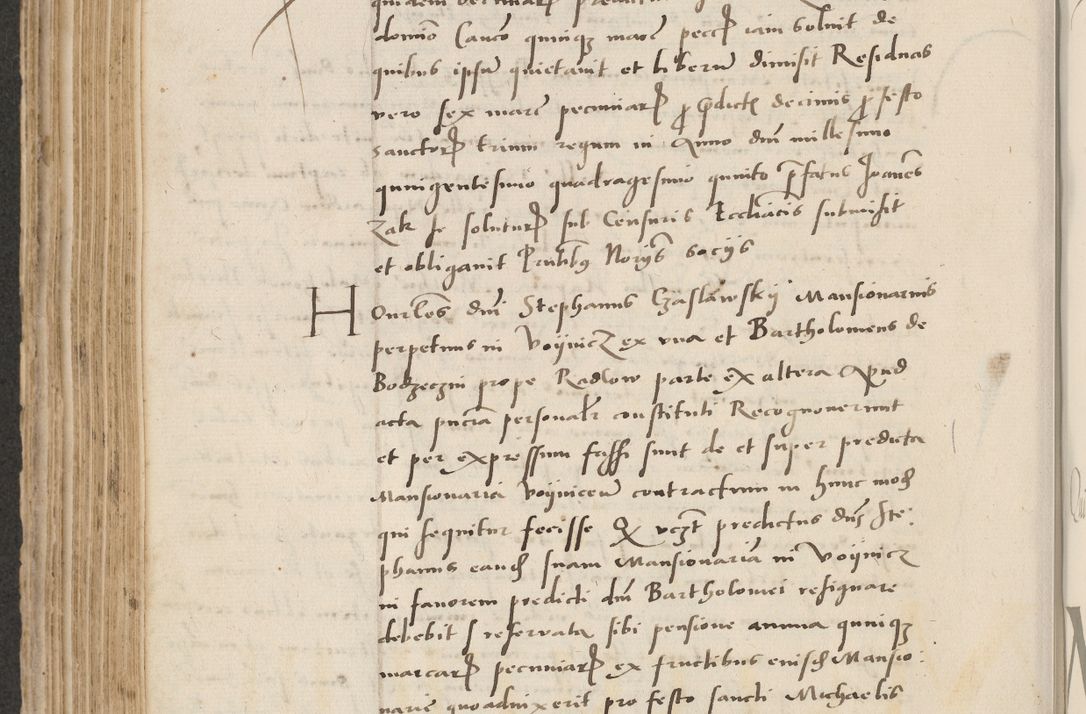 domino Canco quinque marc pecc iam solvit de
quibus ipsum quietavit et liberum dimisit Residuas
vero sex marc pecuniar pro predictis decimis pro festo
sanctor trium regum in Anno dni millesimo
quingentesimo quadragesimo quinto prefatus Joannes
Zak se soluturum sub Censuris Ecclesiacis submisit
et obligavit Pntibus Norijs socijs
HOnrabiles dni Stephanus Czaslawskij Mansionarius
perpetuus in Voijnicz ex una et Bartholomeus de
Bodzeczin prope Radlow parte ex altera Apud
acta pncia personalr constituti Recognoverunt
et per expressum fassi sunt de et super predicta
Mansionaria Voijnicen contractum in hunc mod
qui sequitur fecisse Q vczt predictus dns Ste:
phanus eand suam Mansionariam in Voijnicz
in favorem predicti dni Bartholomei resignare
debebit s reservata sibi pensione annua quinque
marcar pecuniar ex fructibus eiusd Mansio:
narie quoadvixerit pro festo sancti Michaelis